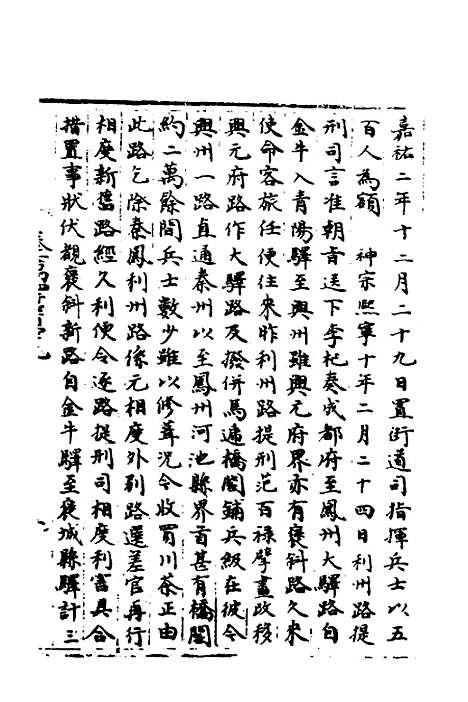 嘉祐二年十二月二十九日置街道司指揮兵士以五
百人為額　神宗熙寧十年二月二十四日利州路提
刑司言准朝㫖送下李杞奏成都府至鳳州大驛路自
金牛入青陽驛至興州雖興元府界亦有襃斜路久來
使命客旅任便往來昨利州路提刑范百禄擘畫改移
興元府路作大驛路及撥併馬遞橋閣鋪兵級在彼今
興州一路直通秦州以至鳳州河池縣界首甚有橋閣
約二萬餘間兵士數少難以修葺况今收買川茶正由
此路乞除秦鳳利州路係元相度外别路選差官再行
相度新舊路經久利便令逐路提刑司相度利害具合
措置事狀伏覩襃斜新路自金牛驛至襃城縣驛計三